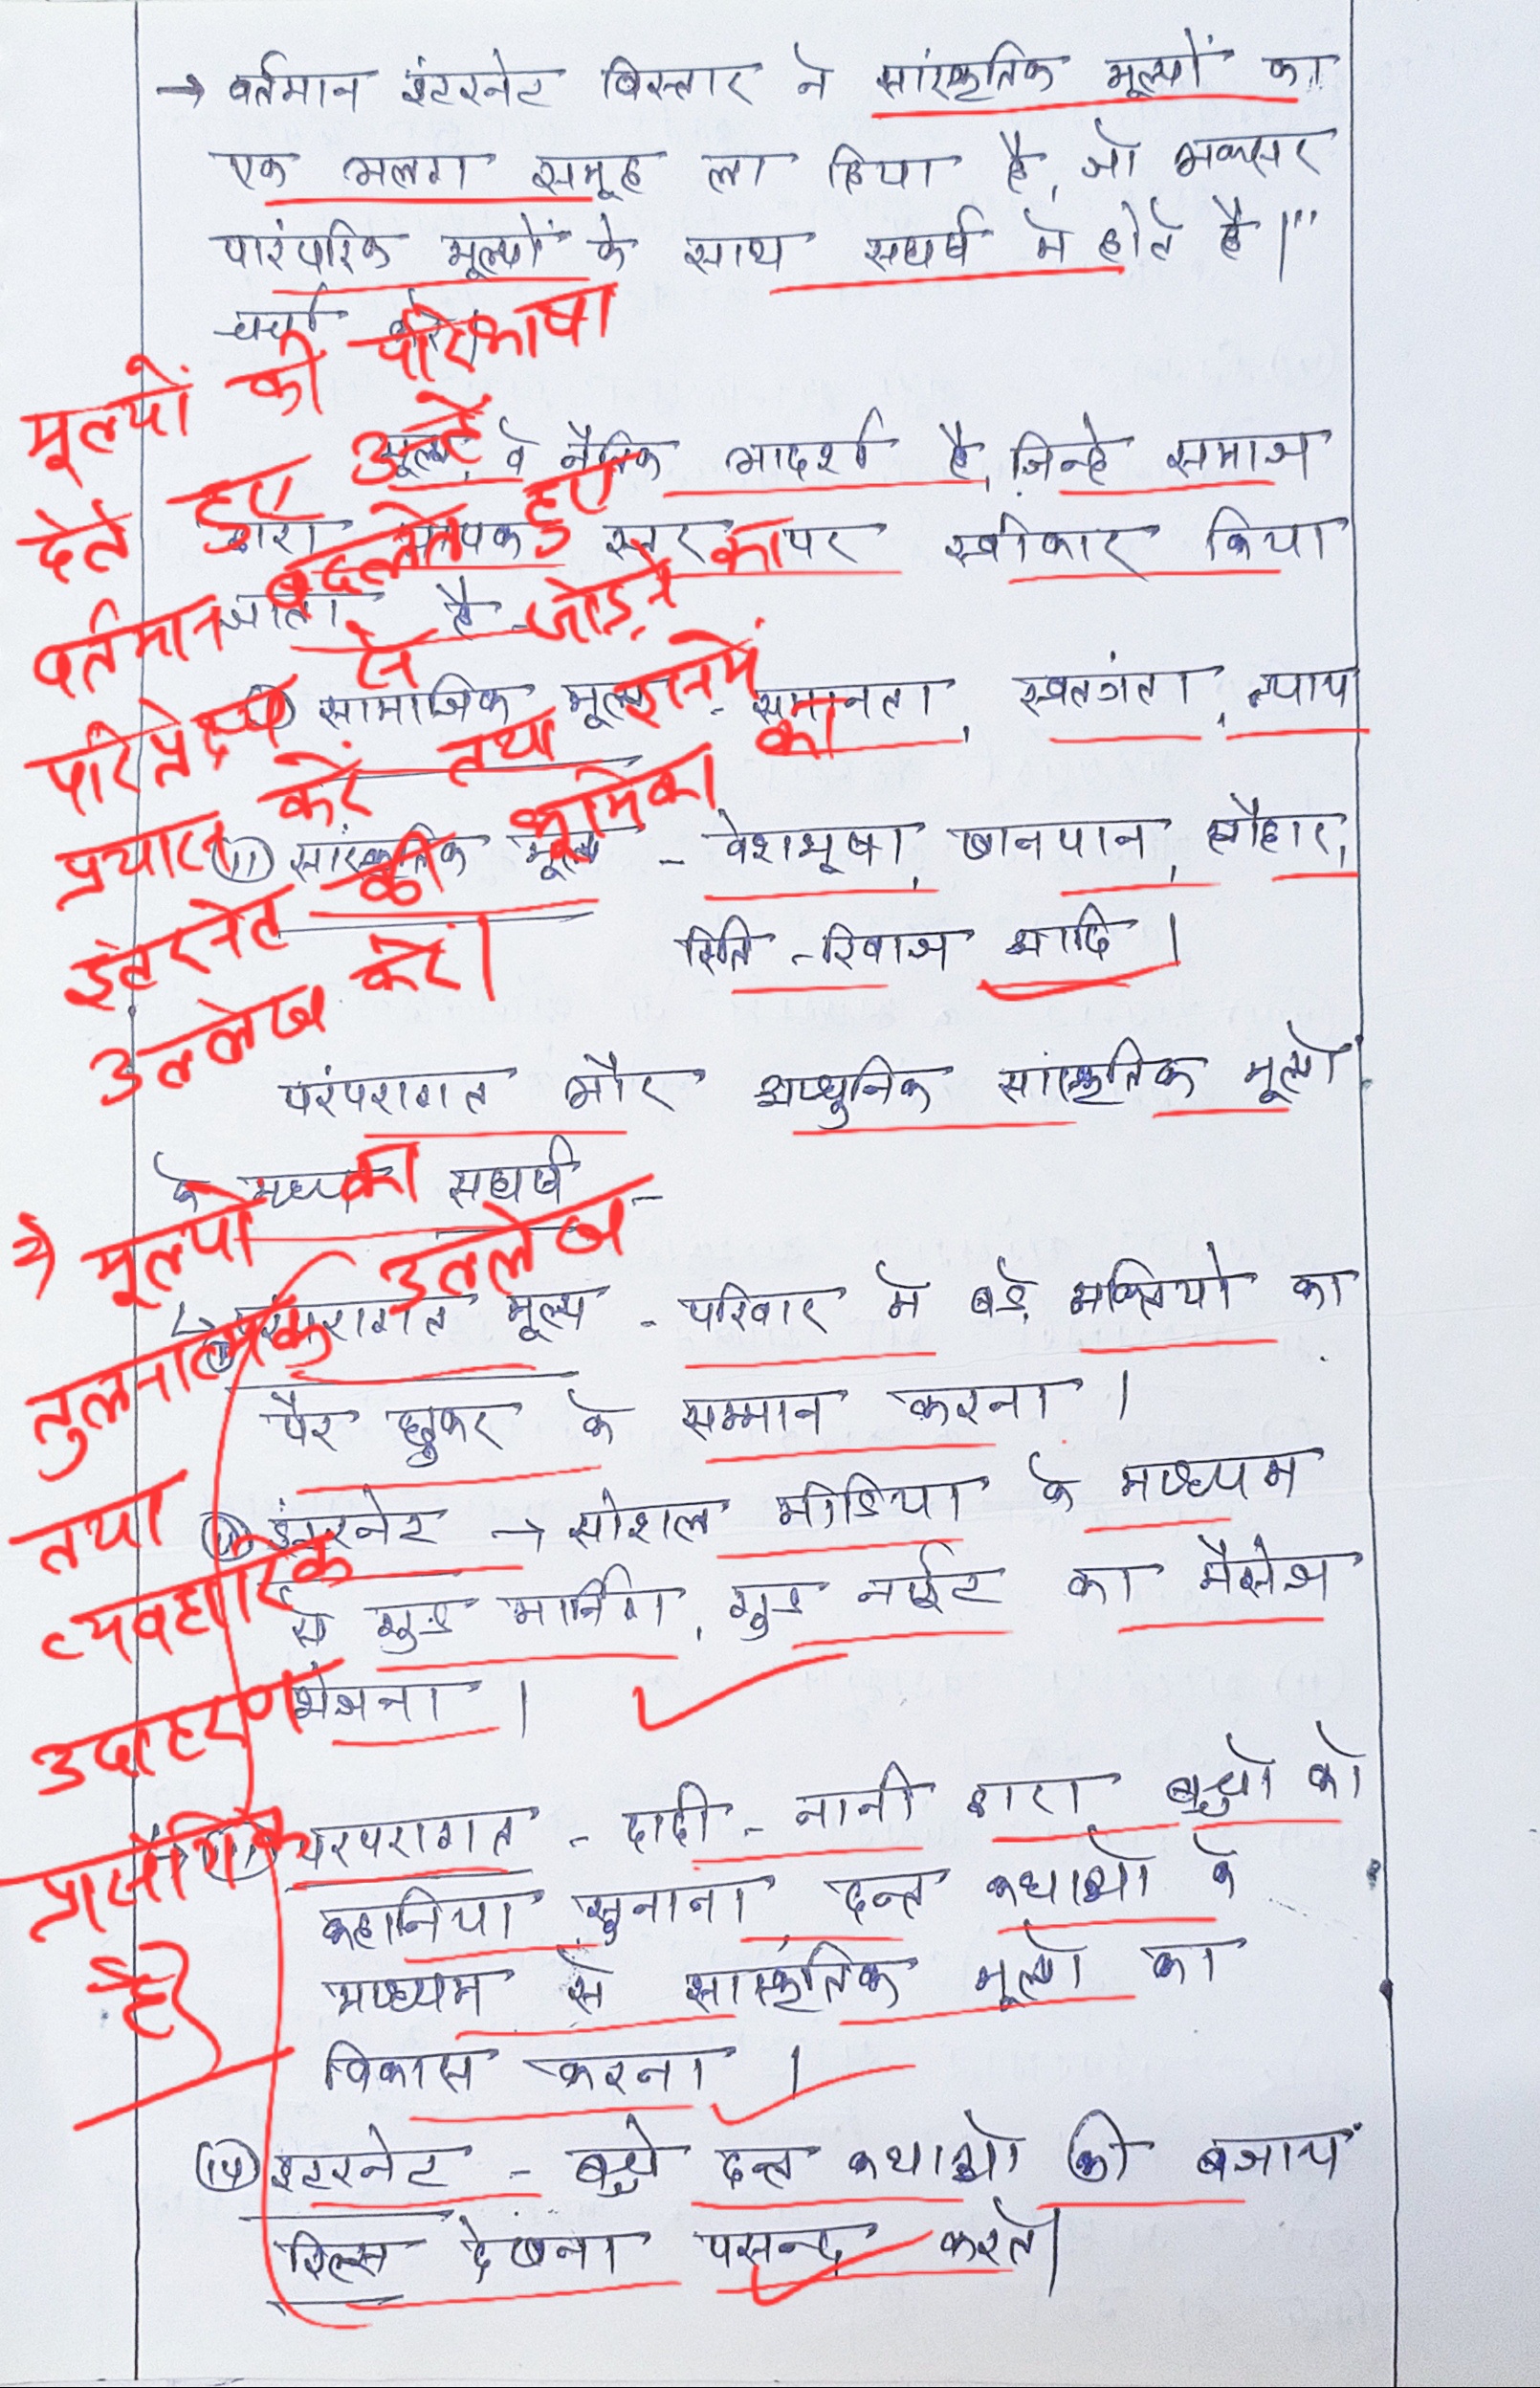 → वर्तमान इंटरनेट विस्तार ने सांस्कृतिक मूल्यों का
एक अलग समूह ला दिया है, जो अक्सर
पारंपरिक मूल्यों के साथ संघर्ष मे होते है।"
चर्चा करे।
मूल्यों की परिभाषा
देते हुए उन्हें
वर्तमान बदलते हुए
परिप्रेक्ष्य से जोड़ने का
प्रयास करें तथा इनमें
इंटरनेट की भूमिका का
उल्लेख करें।
मूल्य वे नैतिक आदर्श है, जिन्हे समाज
द्वारा व्यापक स्तर पर स्वीकार किया
जाता है -
(i) सामाजिक मूल्य - समानता, स्वतंत्रता, न्याय
(ii) सांस्कृतिक मूल्य - वेशभूषा, खानपान, त्यौहार,
रिति-रिवाज आदि।
परंपरागत और आधुनिक सांस्कृतिक मूल्यों
के मध्य संघर्ष -
→ मूल्यों का
तुलनात्मक उल्लेख
तथा
व्यवहारिक
उदाहरण
प्रासंगिक
है।
परंपरागत मूल्य - परिवार मे बड़े व्यक्तियो का
पैर छुकर के सम्मान करना।
(ii) इंटरनेट → सोशल मीडिया के माध्यम
से गुड मार्निंग, गुड नाईट का मैसेज
भेजना।
(iii) परंपरागत - दादी-नानी द्वारा बच्चो को
कहानिया सुनाना, दन्त कथाओ के
माध्यम से सास्कृतिक मूल्यो का
विकास करना।
(iv) इंटरनेट - बच्चे दन्त कथाओ की बजाय
रिल्स देखना पसन्द करते।